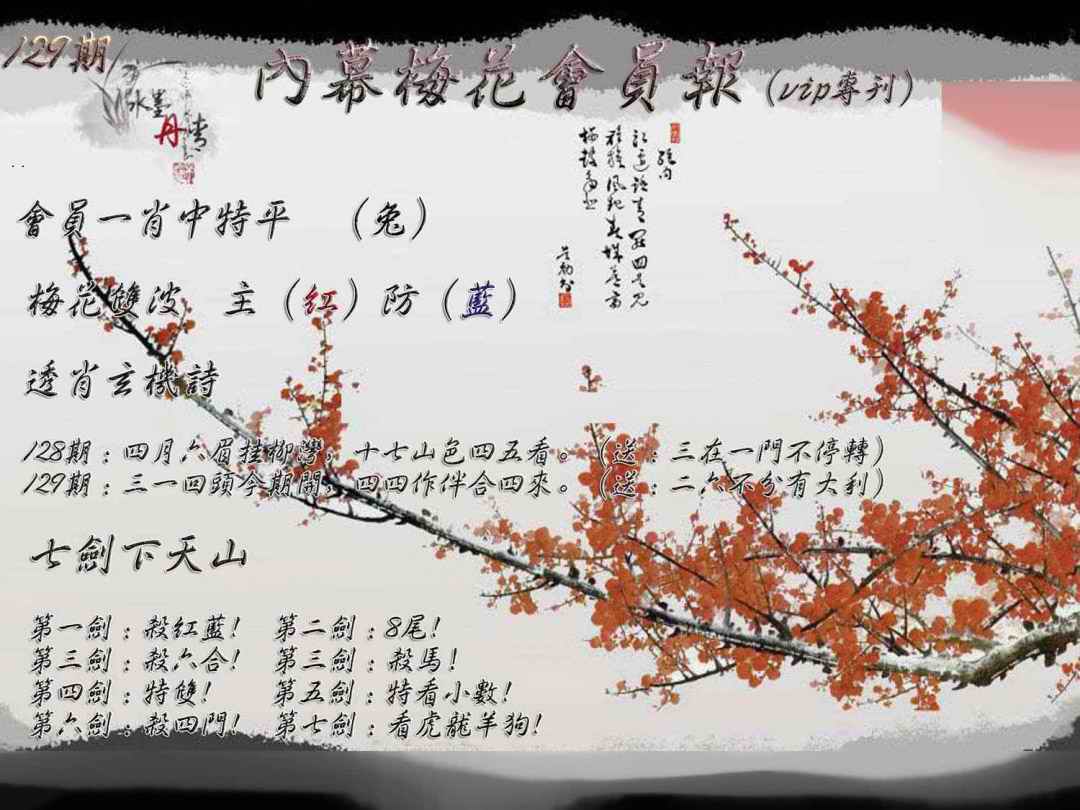 129期
內幕梅花會員報（vip專刊）
水墨
丹青
會員一肖中特平 （兔）
梅花雙波 主（紅）防（藍）
透肖玄機詩
128期：四月六眉挂柳灣，十七山色四五看。（送：三在一門不停轉）
129期：三一回頭今期開，四四作伴合四來。（送：二六不分有大利）
七劍下天山
第一劍：殺紅藍! 第二劍：8尾!
第三劍：殺六合! 第三劍：殺馬!
第四劍：特雙! 第五劍：特看小數!
第六劍：殺四門! 第七劍：看虎龍羊狗!